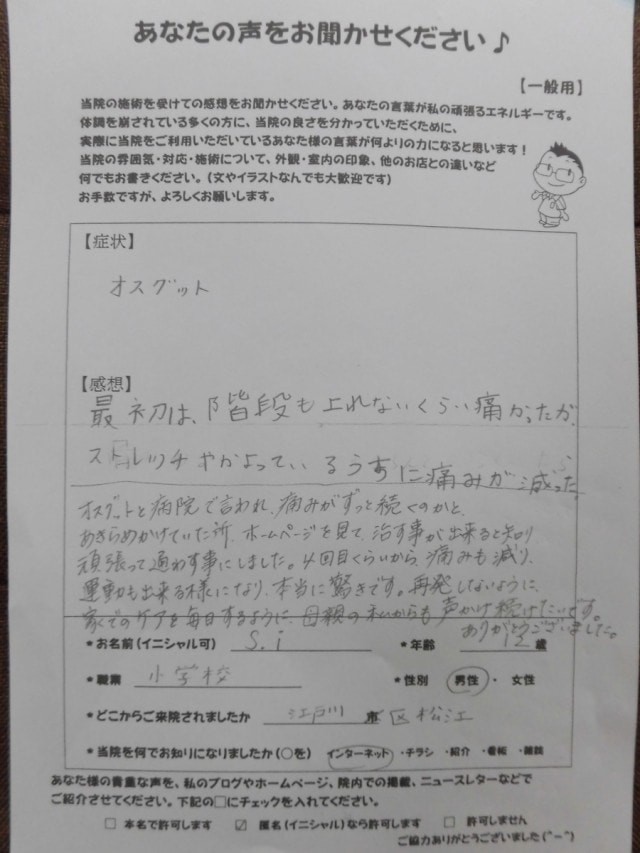 あなたの声をお聞かせください♪
【一般用】
当院の施術を受けての感想をお聞かせください。あなたの言葉が私の頑張るエネルギーです。
体調を崩されている多くの方に、当院の良さを分かっていただくために、
実際に当院をご利用いただいているあなた様の言葉が何よりの力になると思います！
当院の雰囲気・対応・施術について、外観・室内の印象、他のお店との違いなど
何でもお書きください。(文やイラストなんでも大歓迎です)
お手数ですが、よろしくお願いします。
【症状】
オスグット
【感想】
最初は、階段も上れないくらい痛かったが、
ストレッチやかよっているうちに痛みが減った
オスグットと病院で言われ、痛みがずっと続くのかと、
あきらめかけていた所、ホームページを見て、治す事が出来ると知り
頑張って通わす事にしました。4回目くらいから、痛みも減り、
運動も出来る様になり、本当に驚きです。再発しないように、
家でのケアを毎日するように、母親の私からも声かけ続けたいです。
ありがとうございました。
*お名前(イニシャル可) S.i *年齢 12 歳
*職業 小学校 *性別 男性・女性
*どこからご来院されましたか 江戸川 市区 松江
*当院を何でお知りになりましたか(○を) インターネット・チラシ・紹介・看板・雑誌
あなた様の貴重な声を、私のブログやホームページ、院内での掲載、ニュースレターなどで
ご紹介させてください。下記の□にチェックを入れてください。
□ 本名で許可します ☑ 匿名(イニシャル)なら許可します □ 許可しません
ご協力ありがとうございました(^-^)